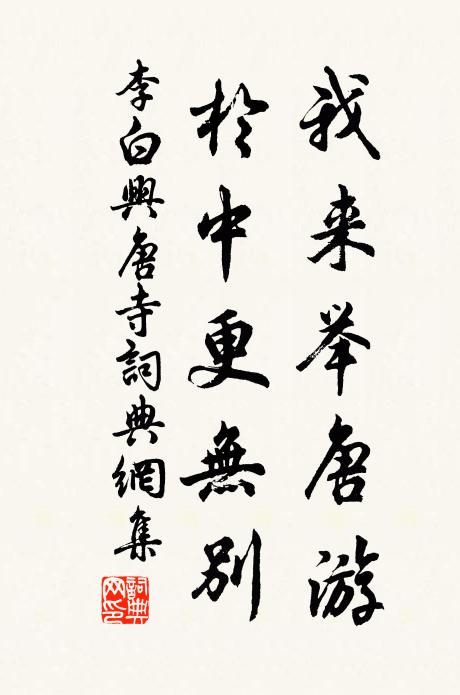 我来举唐游
於中更無別
李白興唐寺詞典網集
詞典網印